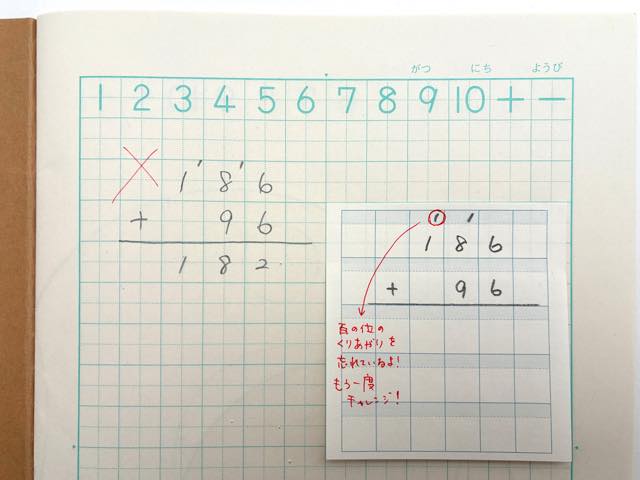 がつ にち ようび
1 2 3 4 5 6 7 8 9 10 + −
1 ' 8 ' 6
+ 9 6
1 8 2
1 1
1 8 6
+ 9 6
百の位の
くりあがりを
忘れているよ!
もう一度
チャレンジ!